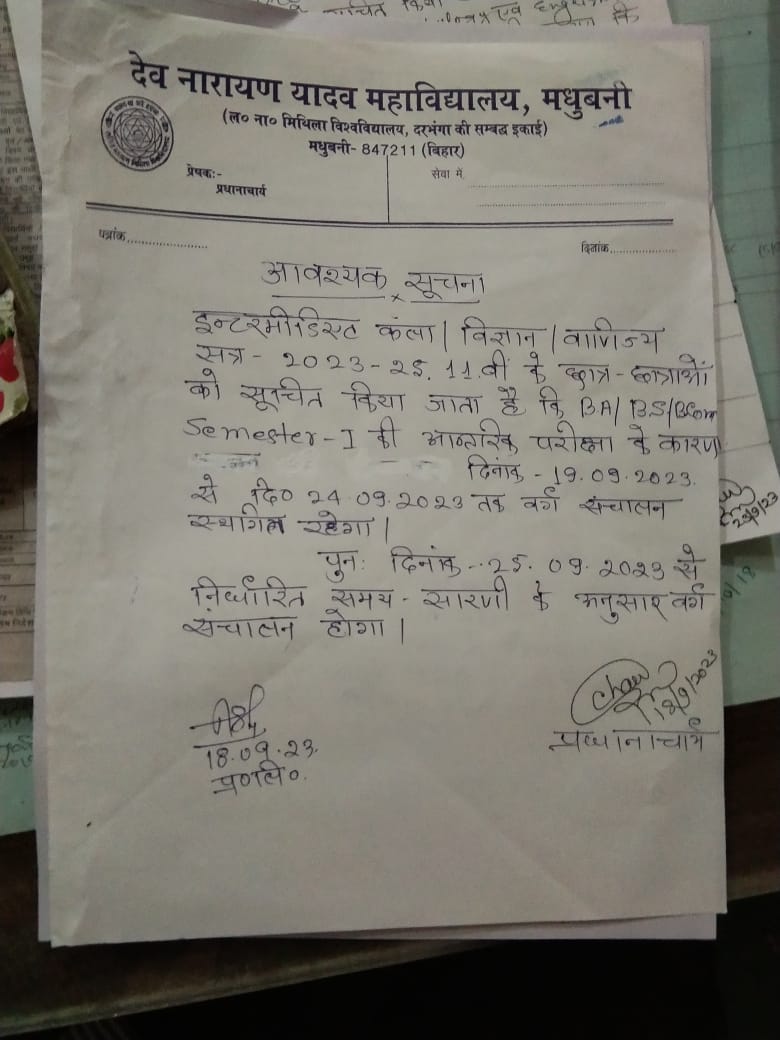 सूचित किया
एवं
देव नारायण यादव महाविद्यालय, मधुबनी
(ल० ना० मिथिला विश्वविद्यालय, दरभंगा की सम्बद्ध इकाई)
मधुबनी- 847211 (बिहार)
प्रेषक:-
प्रधानाचार्य
सेवा में
पत्रांक
दिनांक
आवश्यक सूचना
इन्टरमीडिएट कला/ विज्ञान/ वाणिज्य
सत्र - 2023-25. 11.वीं के छात्र-छात्राओं
को सूचित किया जाता है कि BA/BS/BCom
Semester-I की आन्तरिक परीक्षा के कारण
दिनांक - 19.09.2023.
से दि० 24.09.2023 तक वर्ग संचालन
स्थगित रहेगा।
पुनः दिनांक - 25.09.2023 से
निर्धारित समय-सारणी के अनुसार वर्ग
संचालन होगा।
18/9/2023
प्रधानाचार्य
18.09.23.
प्र०लि०.
23/9/23